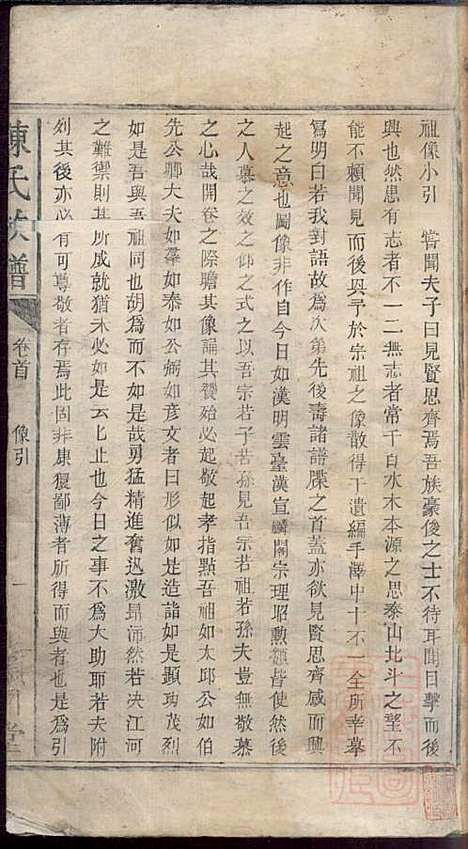 祖像小引　嘗聞夫子曰見賢思齊焉吾族豪俊之士不待耳聞目擊而後
興也然患有志者不一二無志者常千百水木本源之思泰山北斗之望不
能不賴聞見而後興予於宗祖之像散得于遺編手澤中十不一全所幸摹
寫明白若我對語故爲次第先後壽諸譜牒之首蓋亦欲見賢思齊感而興
起之意也圖像非作自今日如漢明雲臺漢宣麟閣宗理昭勲類皆使然後
之人慕之效之仰之式之以吾宗若子若孫見吾宗若祖若孫夫豈無敬慕
之心哉開卷之際瞻其像誦其贊始必起敬起孝指點吾祖如太邱公如伯
先公卿大夫如羣如泰如公弼如彦文者曰形似如是造諸如是顯功茂烈
如是吾與吾祖同也胡爲而不如是哉勇猛精進奮迅激昻沛然若决江河
之難禦則其所成就猶未必如是云止也今日之事不爲大助耶若夫附
列其後亦必有可尊敬者存焉此固非庸猥鄙薄者所得而與者也是爲引
陳氏族譜
卷首
像引
一
堂